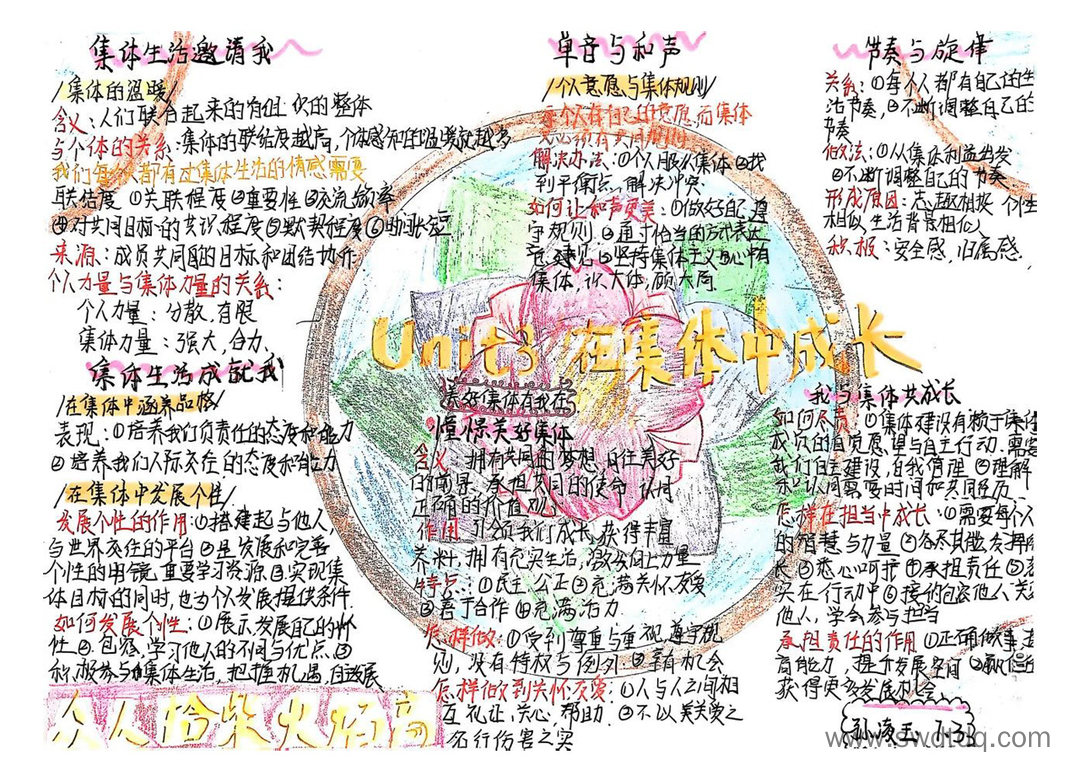 集体生活邀请我
/集体的温暖/
含义:人们联合起来的有组织的整体
与个体的关系:集体的联结度越高,个体感知的温暖就越多
我们每个人都有过集体生活的情感需要
联结度 ①关联程度②重要性③交流频率
④对共同目标的共识程度⑤默契程度⑥时间长短
来源:成员共同的目标和团结协作
个人力量与集体力量的关系:
个人力量:分散,有限
集体力量:强大,合力
集体生活成就我
/在集体中涵养品格/
表现:①培养我们负责任的态度和能力
②培养我们人际交往的态度和能力
/在集体中发展个性/
发展个性的作用:①搭建起与他人,
与世界交往的平台②是发展和完善
个性的明镜,重要学习资源③实现集
体目标的同时,也为个人发展提供条件
如何发展个性:①展示发展自己的个
性②包容,学习他人的不同与优点③
积极参与集体生活,把握机遇,自我发展
众人拾柴火焰高
单音与和声
/个人意愿与集体规则/
每个人有自己的意愿,而集体
解决办法:①个人服从集体②找
到平衡点,解决冲突
如何让和声更美:①做好自己,遵
守规则②通过恰当的方式表达
意见建议③坚持集体主义④心中有
集体,识大体,顾大局
Unit3 在集体中成长
美好集体有我在
憧憬美好集体
含义 拥有共同的梦想,向往美好
的前景,承担共同的使命,认同
正确的价值观
作用 引领我们成长,获得丰富
养料,拥有充实生活,激发向上力量
特点:①民主,公正②充满关怀友爱
③善于合作④充满活力
怎样做:①受到尊重与重视,遵守规
则,没有特权与例外②享有机会
怎样做到关怀友爱:①人与人之间相
互礼让,关心,帮助②不以关爱之
名行伤害之实
节奏与旋律
关系:①每个人都有自己的生
活节奏,②不断调整自己的
节奏
做法:①从集体利益出发
②不断调整自己的节奏
形成原因:志趣相投 个性
相似,生活背景相似
积极:安全感,归属感
我与集体共成长
如何尽责 ①集体建设有赖于集体
成员的自觉愿望与自主行动,需要
我们自主建设,自我管理②理解
和认同需要时间和共同经历
怎样在担当中成长:①需要每个人
的智慧与力量②各尽其能,发挥所
长③悉心呵护④承担责任⑤
实在行动中⑥接纳包容他人,关爱
他人,学会参与担当
承担责任的作用 ①正确做事,提
高能力,提升发展空间②赢得信
获得更多发展机会
www.swdtdq.com